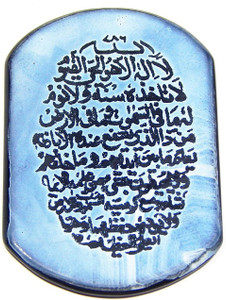 ٧٨٦
الله
لا اله الا هو الحي القيوم
لا تاخذه سنة ولا نوم
له ما في السموت وما في الارض
من ذا الذي يشفع عنده الا باذنه
يعلم ما بين ايديهم وما خلفهم
ولا يحيطون بشئ من علمه الا
بما شاء وسع كرسيه
ولا يؤده حفظهما وهو
العلي العظيم